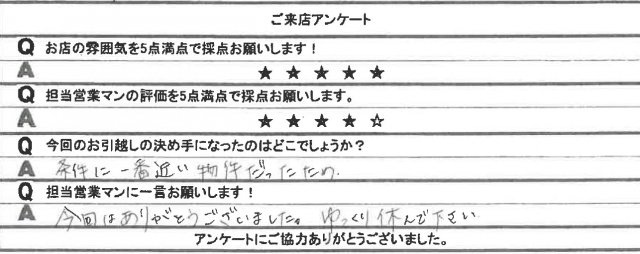 ご来店アンケート
Q お店の雰囲気を5点満点で採点お願いします！
A ★ ★ ★ ★ ★
Q 担当営業マンの評価を5点満点で採点お願いします。
A ★ ★ ★ ★ ☆
Q 今回のお引越しの決め手になったのはどこでしょうか？
A 条件に一番近い物件だったため.
Q 担当営業マンに一言お願いします！
A 今回はありがとうございました。ゆっくり休んで下さい
アンケートにご協力ありがとうございました。